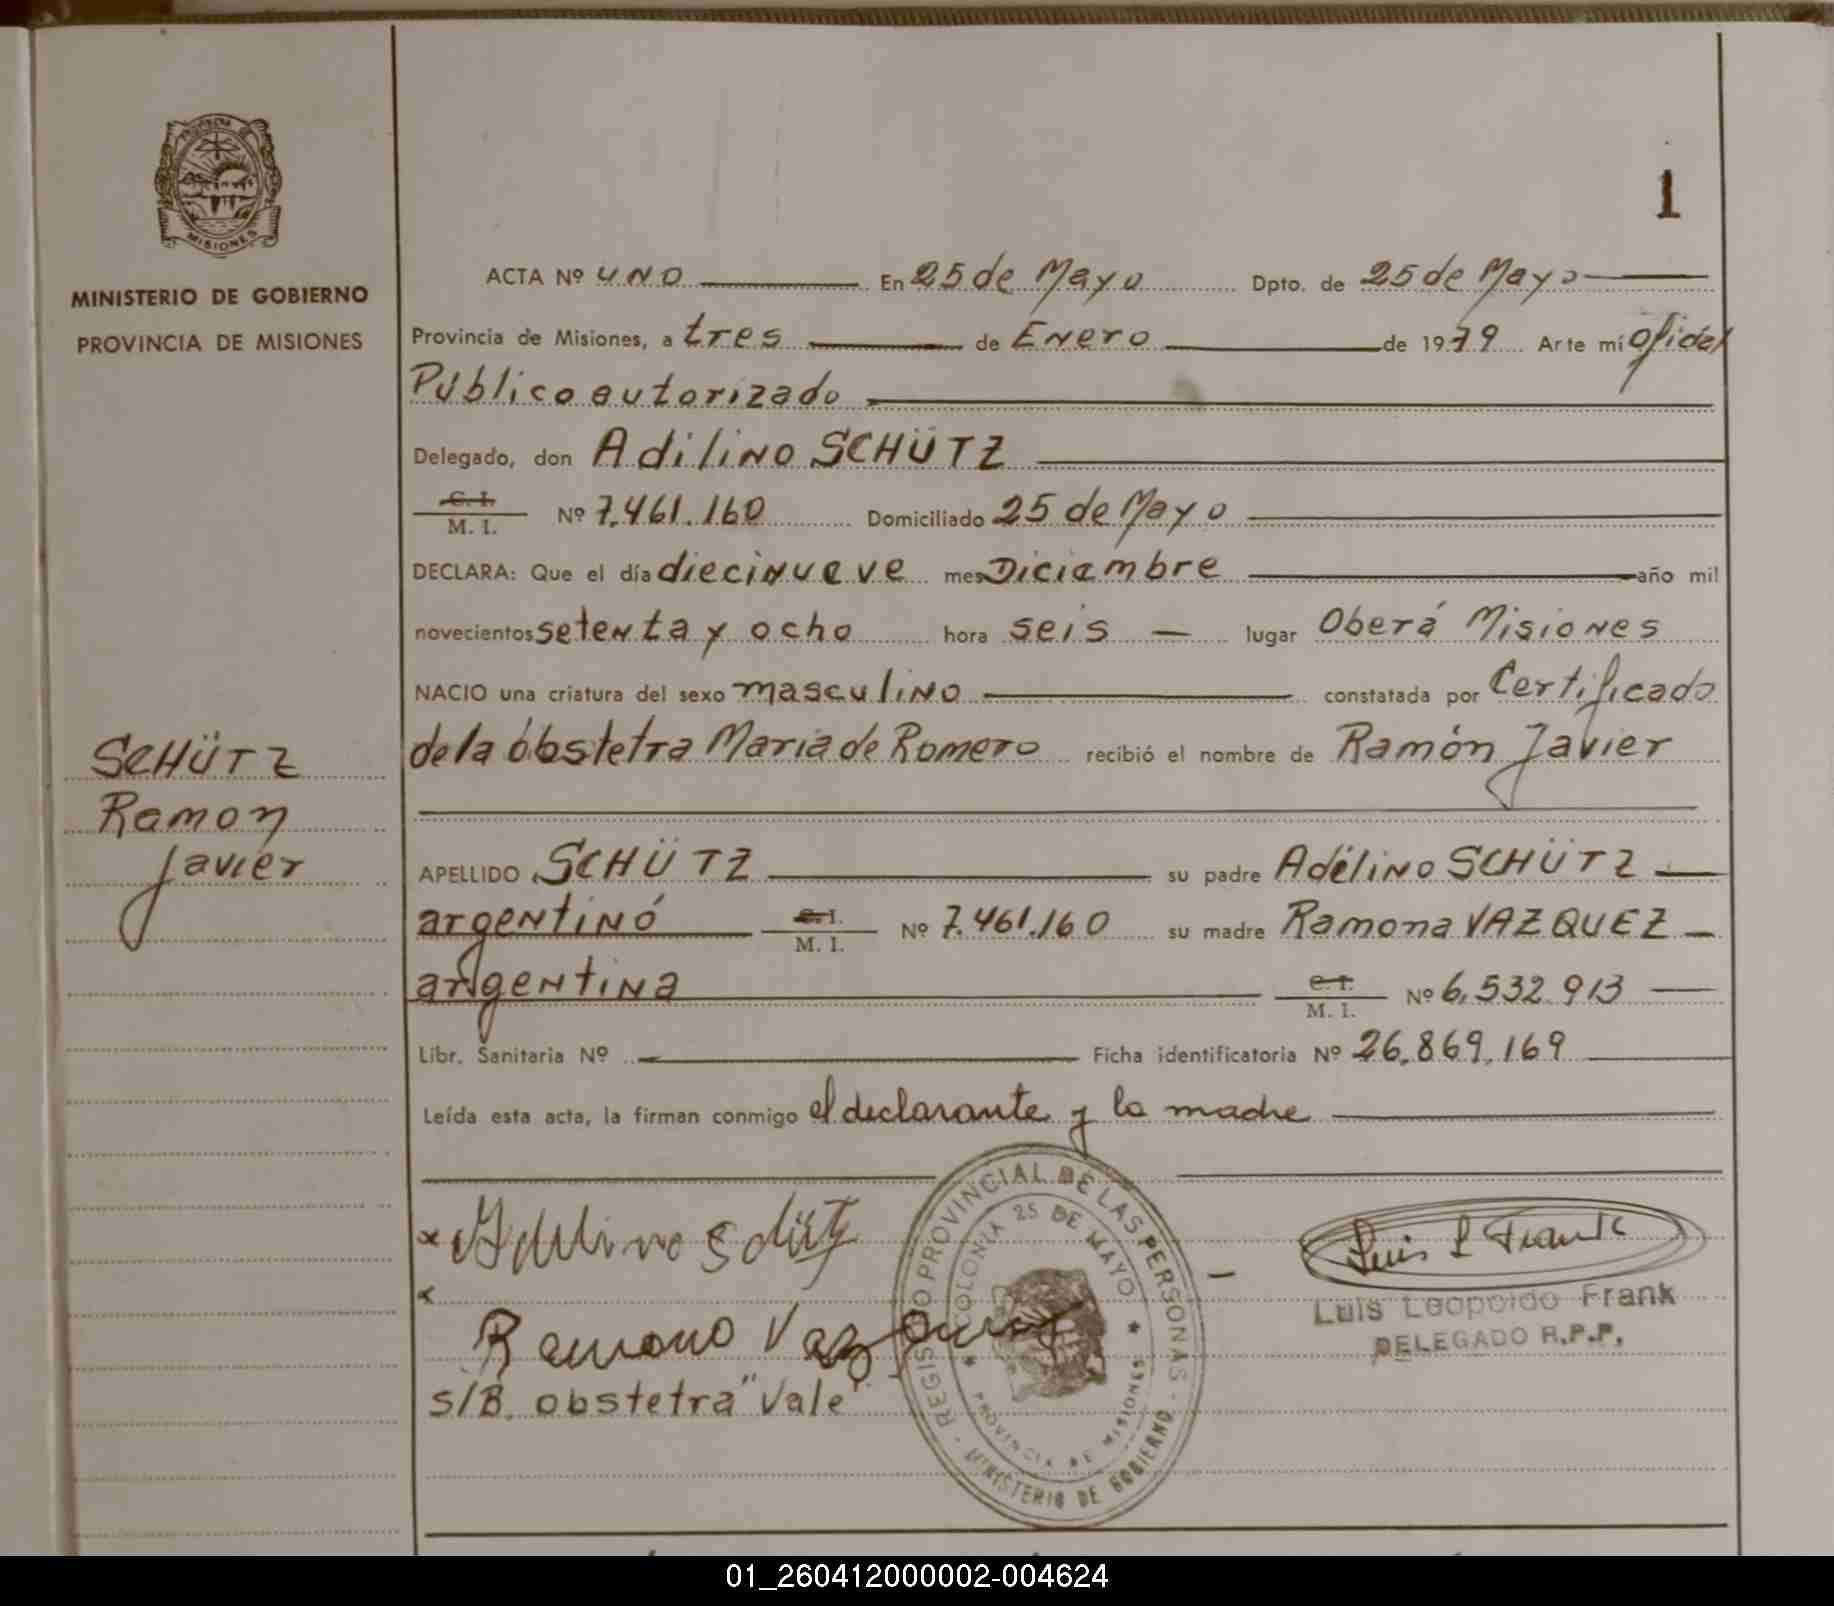 PROVINCIA DE
MISIONES
MINISTERIO DE GOBIERNO
PROVINCIA DE MISIONES
SCHÜTZ
Ramon
Javier
1
ACTA Nº UNO En 25 de Mayo Dpto. de 25 de Mayo
Provincia de Misiones, a tres de Enero de 1979 Ante mí Oficial
Público autorizado
Delegado, don Adilino SCHÜTZ
C. I.
M. I. Nº 7.461.160 Domiciliado 25 de Mayo
DECLARA: Que el día diecinueve mes Diciembre año mil
novecientos setenta y ocho hora seis lugar Oberá Misiones
NACIO una criatura del sexo masculino constatada por Certificado
de la óbstetra Maria de Romero recibió el nombre de Ramón Javier
APELLIDO SCHÜTZ su padre Adélino SCHÜTZ
argentinó C. I.
M. I. Nº 7.461.160 su madre Ramona VAZQUEZ
argentina C. I.
M. I. Nº 6.532.913
Libr. Sanitaria Nº Ficha identificatoria Nº 26.869.169
Leída esta acta, la firman conmigo el declarante y la madre
x Adelino Schütz
x
Ramona Vazquez
s/B. obstetra "Vale"
REGISTRO PROVINCIAL DE LAS PERSONAS - MINISTERIO DE GOBIERNO -
COLONIA 25 DE MAYO * PROVINCIA DE MISIONES *
Luis L Frank
Luis Leopoldo Frank
DELEGADO R.P.P.
01_260412000002-004624